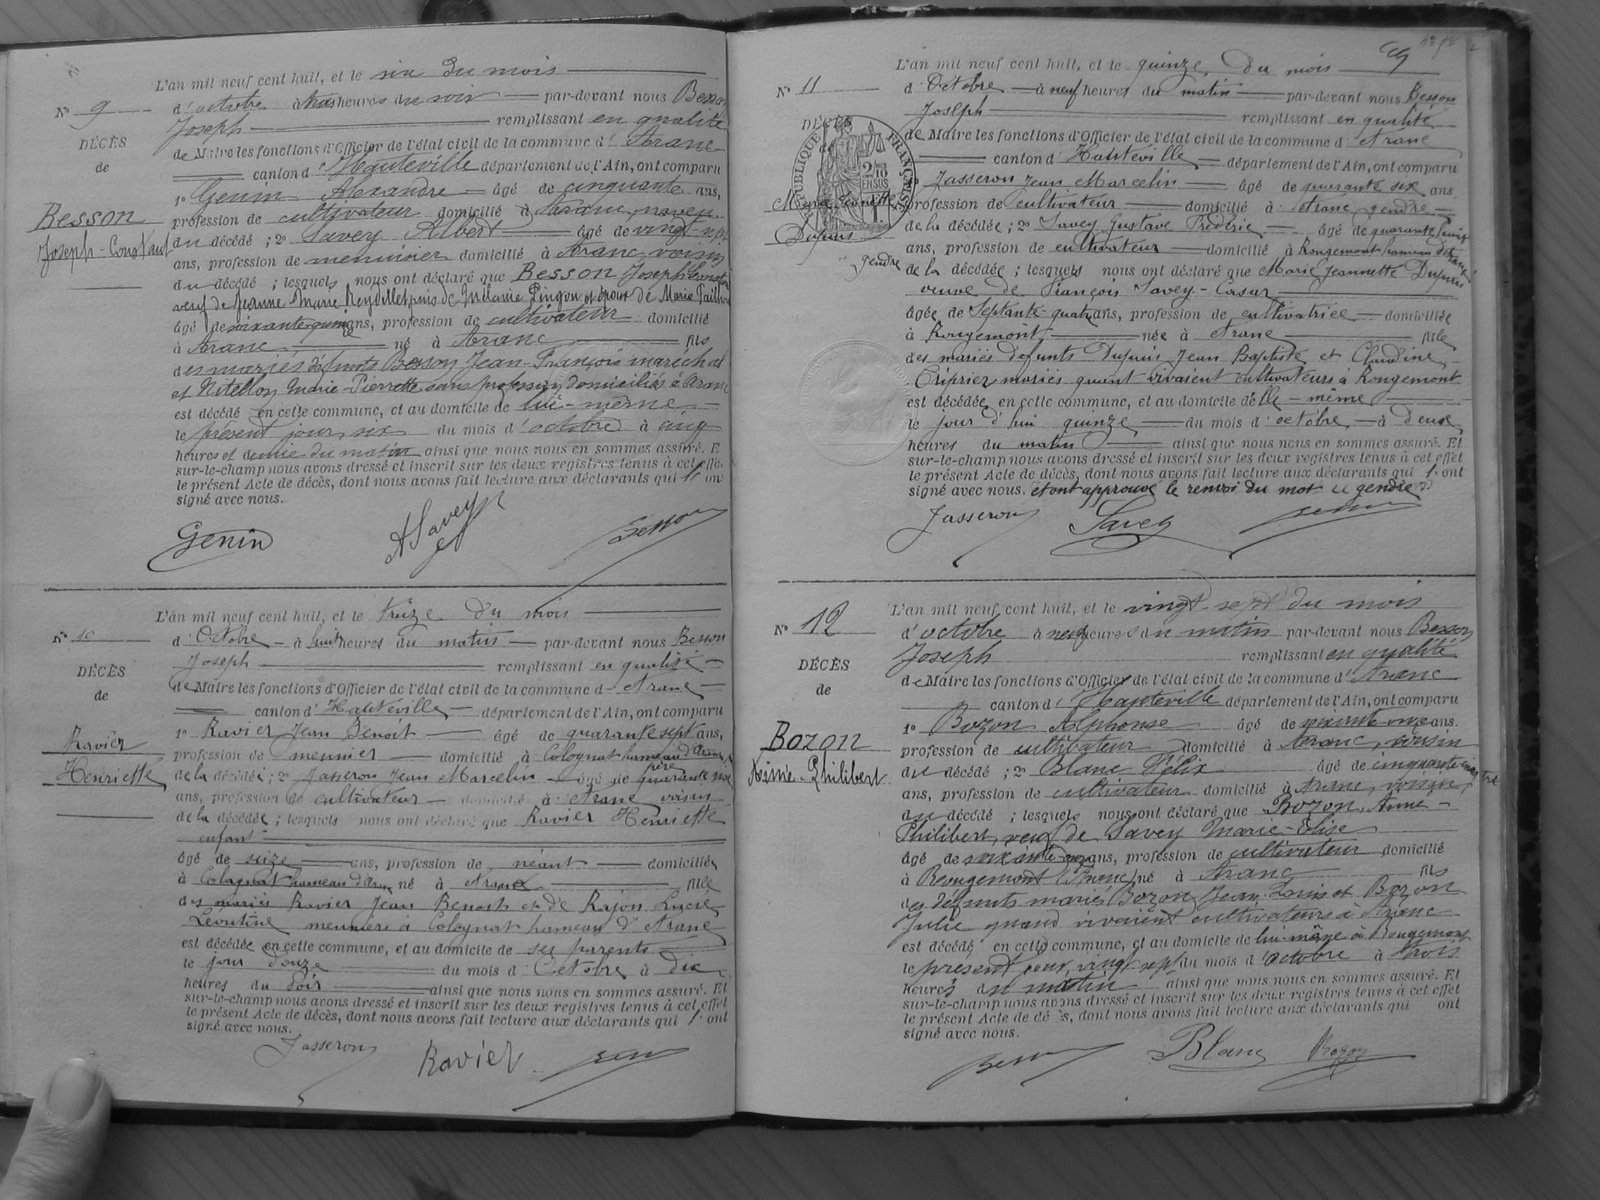 L'an mil neuf cent huit, et le six du mois
N° 9 d'octobre à trois heures du soir par-devant nous Besson
Joseph remplissant en qualité
DÉCÈS de Maire les fonctions d'Officier de l'état civil de la commune d'Aranc
de canton d'Hauteville département de l'Ain, ont comparu
1° Genin Alexandre âgé de cinquante ans,
Besson profession de cultivateur domicilié à Aranc, neveu
Joseph-Constant du décédé ; 2° Savey Albert âgé de vingt-sept
ans, profession de menuisier domicilié à Aranc voisin
du décédé ; lesquels nous ont déclaré que Besson Joseph Constant
veuf de Jeanne Marie Reydellet puis de Mélanie Pingon et époux de Marie
âgé de soixante quinze ans, profession de cultivateur domicilié
à Aranc né à Aranc fils
des mariés défunts Besson Jean-François maréchal
et Nitellon Marie-Pierrette sans profession domiciliés à Aranc
est décédé en cette commune, et au domicile de lui-même
le présent jour, six du mois d'octobre à cinq
heures et demie du matin ainsi que nous nous en sommes assuré. E
sur-le-champ nous avons dressé et inscrit sur les deux registres tenus à cet effe
le présent Acte de décès, dont nous avons fait lecture aux déclarants qui l' on
signé avec nous.
Genin A Savey Besson
L'an mil neuf cent huit, et le treize du mois
N° 10 d'Octobre à huit heures du matin par-devant nous Besson
Joseph remplissant en qualité
DÉCÈS de Maire les fonctions d'Officier de l'état civil de la commune d'Aranc
de canton d'Hauteville département de l'Ain, ont comparu
1° Ravier Jean Benoit âgé de quarante sept ans,
Ravier profession de meunier domicilié à Colognat hameau d'Aranc
père
Henriette de la décédée ; 2° Jasseron Jean Marcelin âgé de quarante six
ans, profession de cultivateur domicilié à Aranc voisin
de la décédée ; lesquels nous ont déclaré que Ravier Henriette
enfant
âgé de seize ans, profession de néant domiciliée
à Colognat hameau d'Aranc né à Aranc fille
des mariés Ravier Jean Benoit et de Rajon Lucie
Léontine meuniers à Colognat hameau d'Aranc
est décédée en cette commune, et au domicile de ses parents
le jour douze du mois d'Octobre à dix
heures du soir ainsi que nous nous en sommes assuré. Et
sur-le-champ nous avons dressé et inscrit sur les deux registres tenus à cet effet
le présent Acte de décès, dont nous avons fait lecture aux déclarants qui l' ont
signé avec nous.
Jasseron Ravier
L'an mil neuf cent huit, et le quinze du mois
N° 11 d'Octobre à neuf heures du matin par-devant nous Besson
Joseph remplissant en qualité
DÉCÈS de Maire les fonctions d'Officier de l'état civil de la commune d'Aranc
RÉPUBLIQUE FRANÇAISE
canton d'Hauteville département de l'Ain, ont comparu
1° Jasseron Jean Marcelin âgé de quarante six ans
Marie Jeannette profession de cultivateur domicilié à Aranc gendre
Dupuis de la décédée ; 2° Savey Gustave Frédéric âgé de quarante
ans, profession de cultivateur domicilié à Rougemont hameau d'Aranc
gendre de la décédée ; lesquels nous ont déclaré que Marie Jeannette Dupuis
veuve de François Savey-Casar
âgée de Septante-quatre ans, profession de cultivatrice domiciliée
à Rougemont née à Aranc fille
des mariés défunts Dupuis Jean Baptiste et Claudine
Criprier mariés quand vivaient cultivateurs à Rougemont
est décédée en cette commune, et au domicile d'elle-même
le jour d'hui quinze du mois d'octobre à deux
heures du matin ainsi que nous nous en sommes assuré. Et
sur-le-champ nous avons dressé et inscrit sur les deux registres tenus à cet effet
le présent Acte de décès, dont nous avons fait lecture aux déclarants qui l' ont
signé avec nous. et ont approuvé le renvoi du mot gendre
Jasseron Savey Besson
L'an mil neuf cent huit, et le vingt-sept du mois
N° 12 d'octobre à neuf heures du matin par-devant nous Besson
Joseph remplissant en qualité
DÉCÈS de Maire les fonctions d'Officier de l'état civil de la commune d'Aranc
de canton d'Hauteville département de l'Ain, ont comparu
1° Bozon Alphonse âgé de ans.
Bozon profession de cultivateur domicilié à Aranc, voisin
Aimé-Philibert du décédé ; 2° Blanc Félix âgé de cinquante
ans, profession de cultivateur domicilié à Aranc, voisin
du décédé ; lesquels nous ont déclaré que Bozon Aimé-
Philibert, veuf de Savey Marie-Elise
âgé de ans, profession de cultivateur domicilié
à Rougemont (Aranc) né à Aranc fils
des défunts mariés Bozon Jean Louis et Bozon
Julie quand vivaient cultivateurs à Aranc
est décédé en cette commune, et au domicile de lui-même à Rougemont
le présent jour, vingt sept du mois d'octobre à trois
heures du matin ainsi que nous nous en sommes assuré. Et
sur-le-champ nous avons dressé et inscrit sur les deux registres tenus à cet effet
le présent Acte de décès, dont nous avons fait lecture aux déclarants qui ont
signé avec nous.
Besson Blanc Bozon